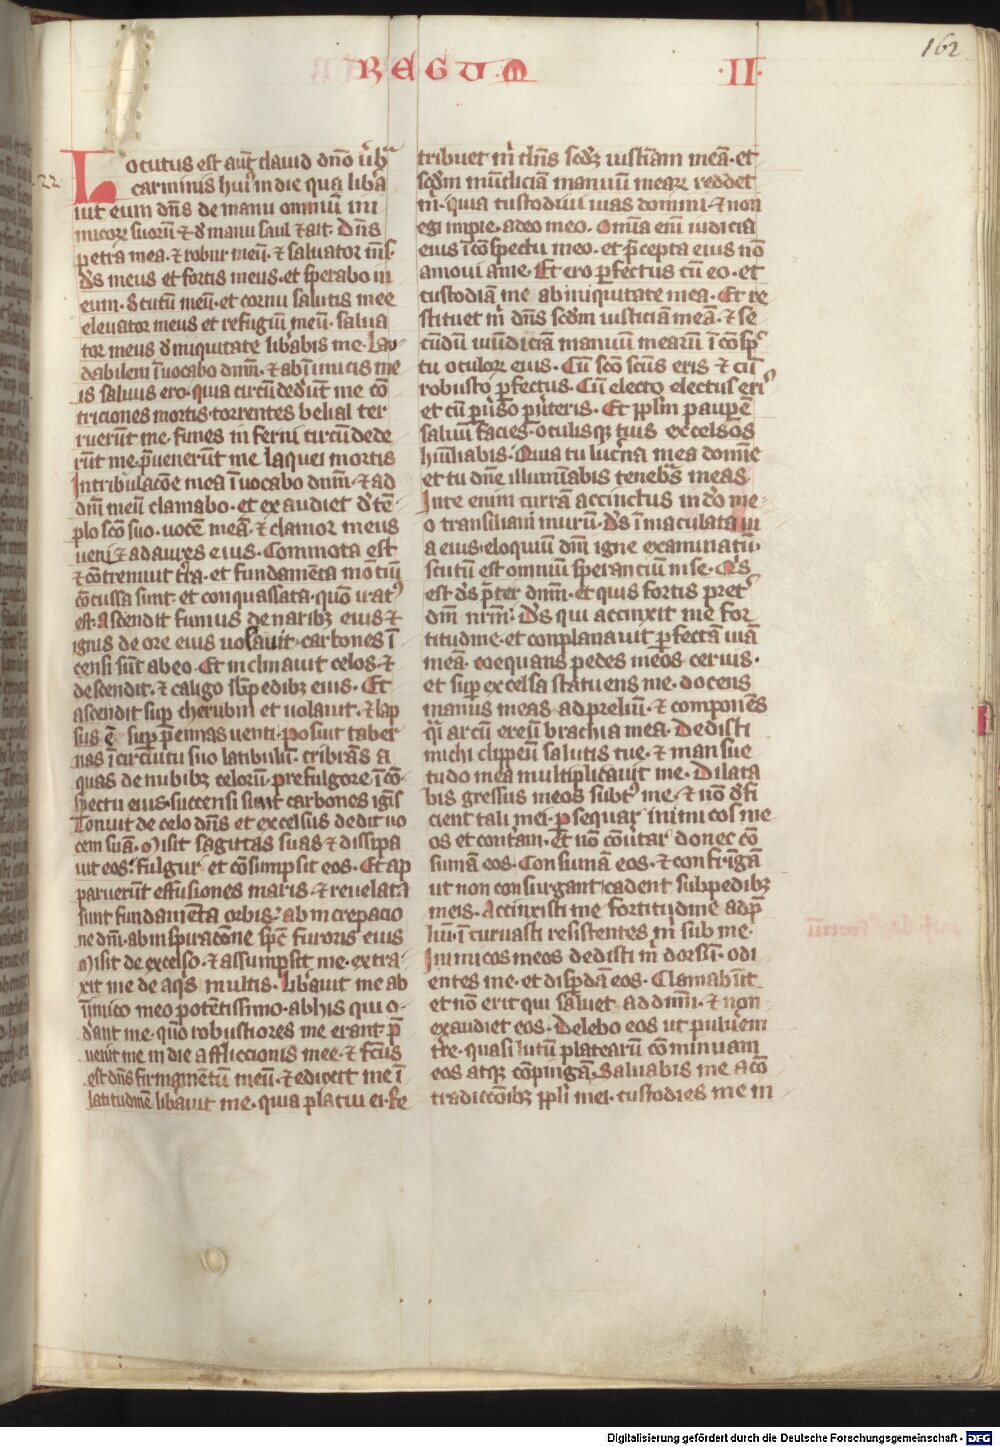 162
REGUM
·II·
22
Locutus est aut̄ dauid dn̄o u̾ba
carminis hui᾽ in die qua liba
uit eum dn̄s de manu omniū ini
micoꝝ suoꝝ ⁊ de manu saul ⁊ ait· Dn̄s
petra mea· ⁊ robur meū· ⁊ saluator m̄s·
d̄s meus et fortis meus· et sperabo in
eum· scutū meū· et cornu salutis mee
eleuator meus et refugiū meū· salua
tor meus de iniquitate libabis me· Lau-
dabilem īuocabo dnm̄· ⁊ ab inimicis me
is saluus ero· quia circūdedert̄ me cō
triciones mortis· torrentes belial ter
ruerūt me· funes inferni circūdede
rūt me· p̄uenerūt me laquei mortis
In tribulacōe mea īuocabo dnm̄· ⁊ ad
dm̄ meū clamabo· et exaudiet de tē
plo scō suo· uocē meā· ⁊ clamor meus
ueni⁊ ad aures eius· Commota est
⁊ cōtremuit tr̄a· et fundamēta mōtiū
cōcussa sunt et conquassata· quō irat᾽
est· Ascendit fumus de naribꝫ eius· ⁊
ignis de ore eius uolauit· carbones ī
censi sūt ab eo· Et inclinauit celos· ⁊
descendit· ⁊ caligo sb̄ pedibꝫ eius· Et
ascendit sup cherubin et uolauit· ⁊ lap
sus ē sup pennas uenti· posuit taber
nas ī circūitu suo latibulū· cribrās a
quas de nubibꝫ celorū· pre fulgore ī cō-
spectu eius· succensi sunt carbones ignis
Tonuit de celo dn̄s et excelsus dedit uo
cem suā· Misit sagittas suas ⁊ dissipa
uit eos· fulgur et cōsumpsit eos· Et ap
paruerūt effusiones maris· ⁊ reuelata
sunt fundamēta orbis· ab increpacio
ne dn̄i· ab inspiracōne spc̄ furoris eius
Misit de excelso· ⁊ assumpsit me· extra-
xit me de aq̄s multis· Libauit me ab
inimico meo potentissimo· ab his qui o-
derant me· quō robustiores me erant· p̄
uenit me in die affliccionis mee· ⁊ fc̄us
est dn̄s firmamētū meū· ⁊ eduxit me ī
latitudinē libauit me· quia placui ei· Re
tribuet m̄ dn̄s scd̄ꝫ iusticiam meā· et
scd̄m mūdiciā manuū meaꝝ reddet
m̄· quia custodiui uias domini· ⁊ non
egi impie· a deo meo· Omīa eni iudicia
eius ī cōspectu meo· et p̄cepta eius nō
amoui a me· Et ero p̄fectus cū eo· et
custodiā me ab iniquitate mea· Et re
stituet m̄ dn̄s scd̄m iusticiā meā· ⁊ se
cūdū mūdiciā manuū mearū ī cōsp̄c
tu oculoꝝ eius· Cū scō scūs eris ⁊ cū
robusto perfectus· Cū electo electus eris
et cū peruerso peruerteris· Et pplm̄ pauperē
saluū facies· oculisqꝫ tuis excelsos
humiliabis· Quia tu lucerna mea domine
et tu dn̄e illuminabis tenebras meas·
In te enim currā accinctus in deo me
o transiliam murū· d̄s īmaculata ui
a eius· eloquiū dn̄i igne examinatū·
scutū est omniū sperancium in se· Qis
est d̄s p̄ter dnm̄· et quis fortis preter
dm̄ nrm̄· D̄s qui accinxit me for
titudine· et conplanauit perfectā uiā
meā· coequans pedes meos ceruis·
et super excelsa statuens me· docens
manus meas ad preliū· ⁊ componēs
q̄si arcū ereū brachia mea· Dedisti
michi clippeū salutis tue· ⁊ mansue
tudo mea multiplicauit me· Dilata
bis gressus meos subtus me· ⁊ nō defi
cient tali mei· persequar inimicos me
os et conteram· Et nō cōuertar donec cō
sumā eos· Consumā eos· ⁊ confringā
ut non consurgant· cadent sub pedibꝫ
meis· Accinxisti me fortitudine ad p̄
liū· ī curuasti resistentes m̄ sub me·
Inimicos meos dedisti m̄ dorsū· odi
entes me· et disperdā eos· Clamabunt
et nō erit qui saluet ad dnm̄· ⁊ non
exaudiet eos· Delebo eos ut puluerem
terre· quasi lutū platearū cōminuam
eos atqꝫ cōpingā· Saluabis me a cō
tradiccōibꝫ ppli mei· custodies me in
Digitalisierung gefördert durch die Deutsche Forschungsgemeinschaft - DFG